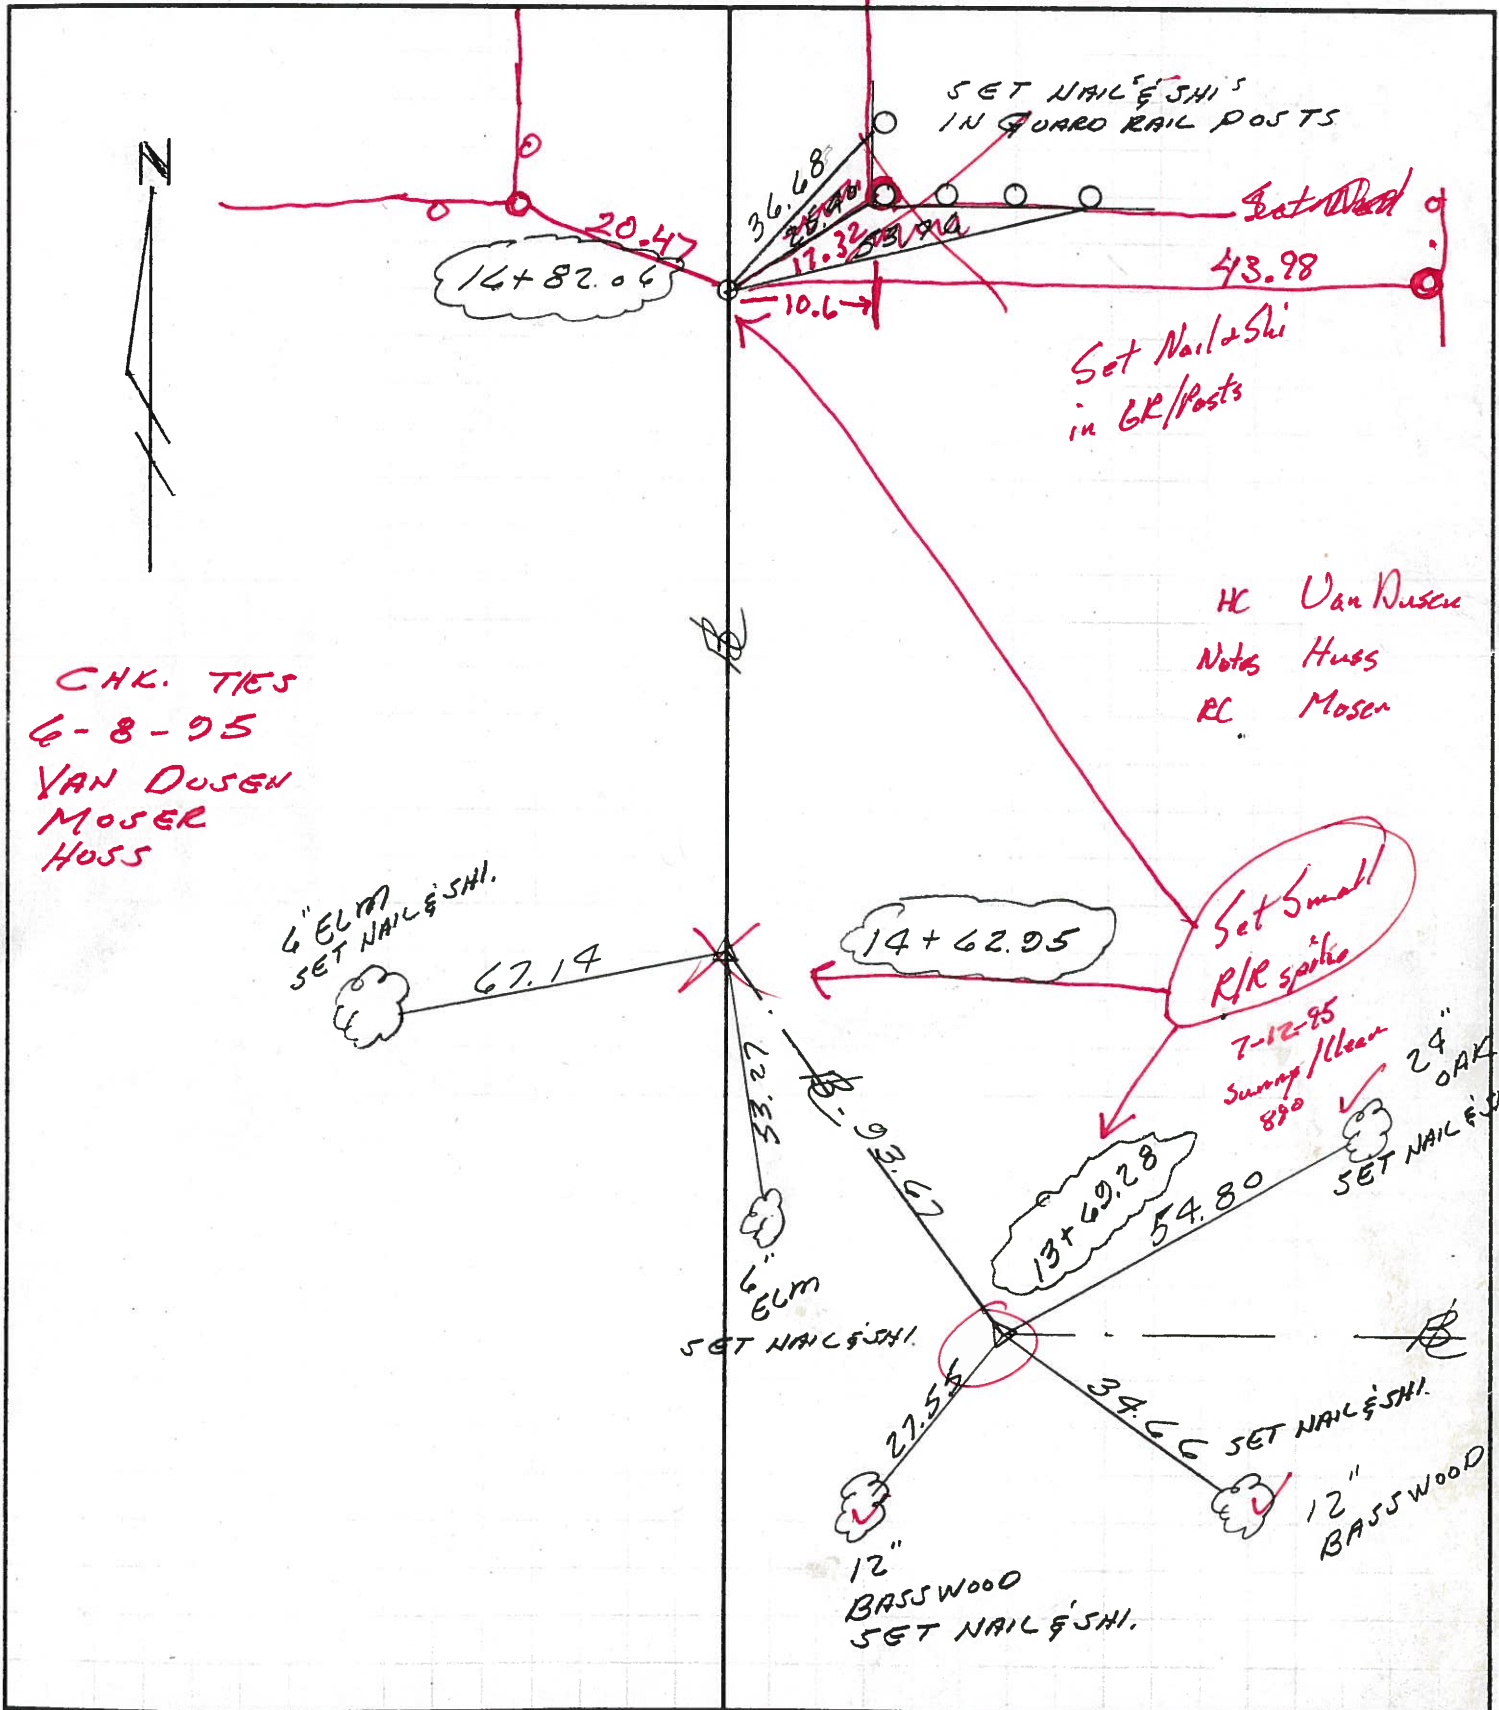 SET NAIL'S & SHI'S
IN GUARD RAIL POSTS
N
36.68
25.40
20.47
17.32
16+82.06
10.6
43.98
Set Nail & Shi
in GR/Posts
HC Van Dusen
Notes Huss
RC Moser
BL
CHK. TIES
6-8-95
VAN DUSEN
MOSER
HUSS
6" ELM
SET NAIL & SHI.
67.14
14+62.95
Set Small
R/R spike
7-12-95
Sunny/Clear
89°
53.27
BL
93.67
24"
OAK
SET NAIL & SH
13+69.28
54.80
6"
ELM
SET NAIL & SHI.
BL
27.55
34.66
SET NAIL & SHI.
12"
BASSWOOD
12"
BASSWOOD
SET NAIL & SHI.